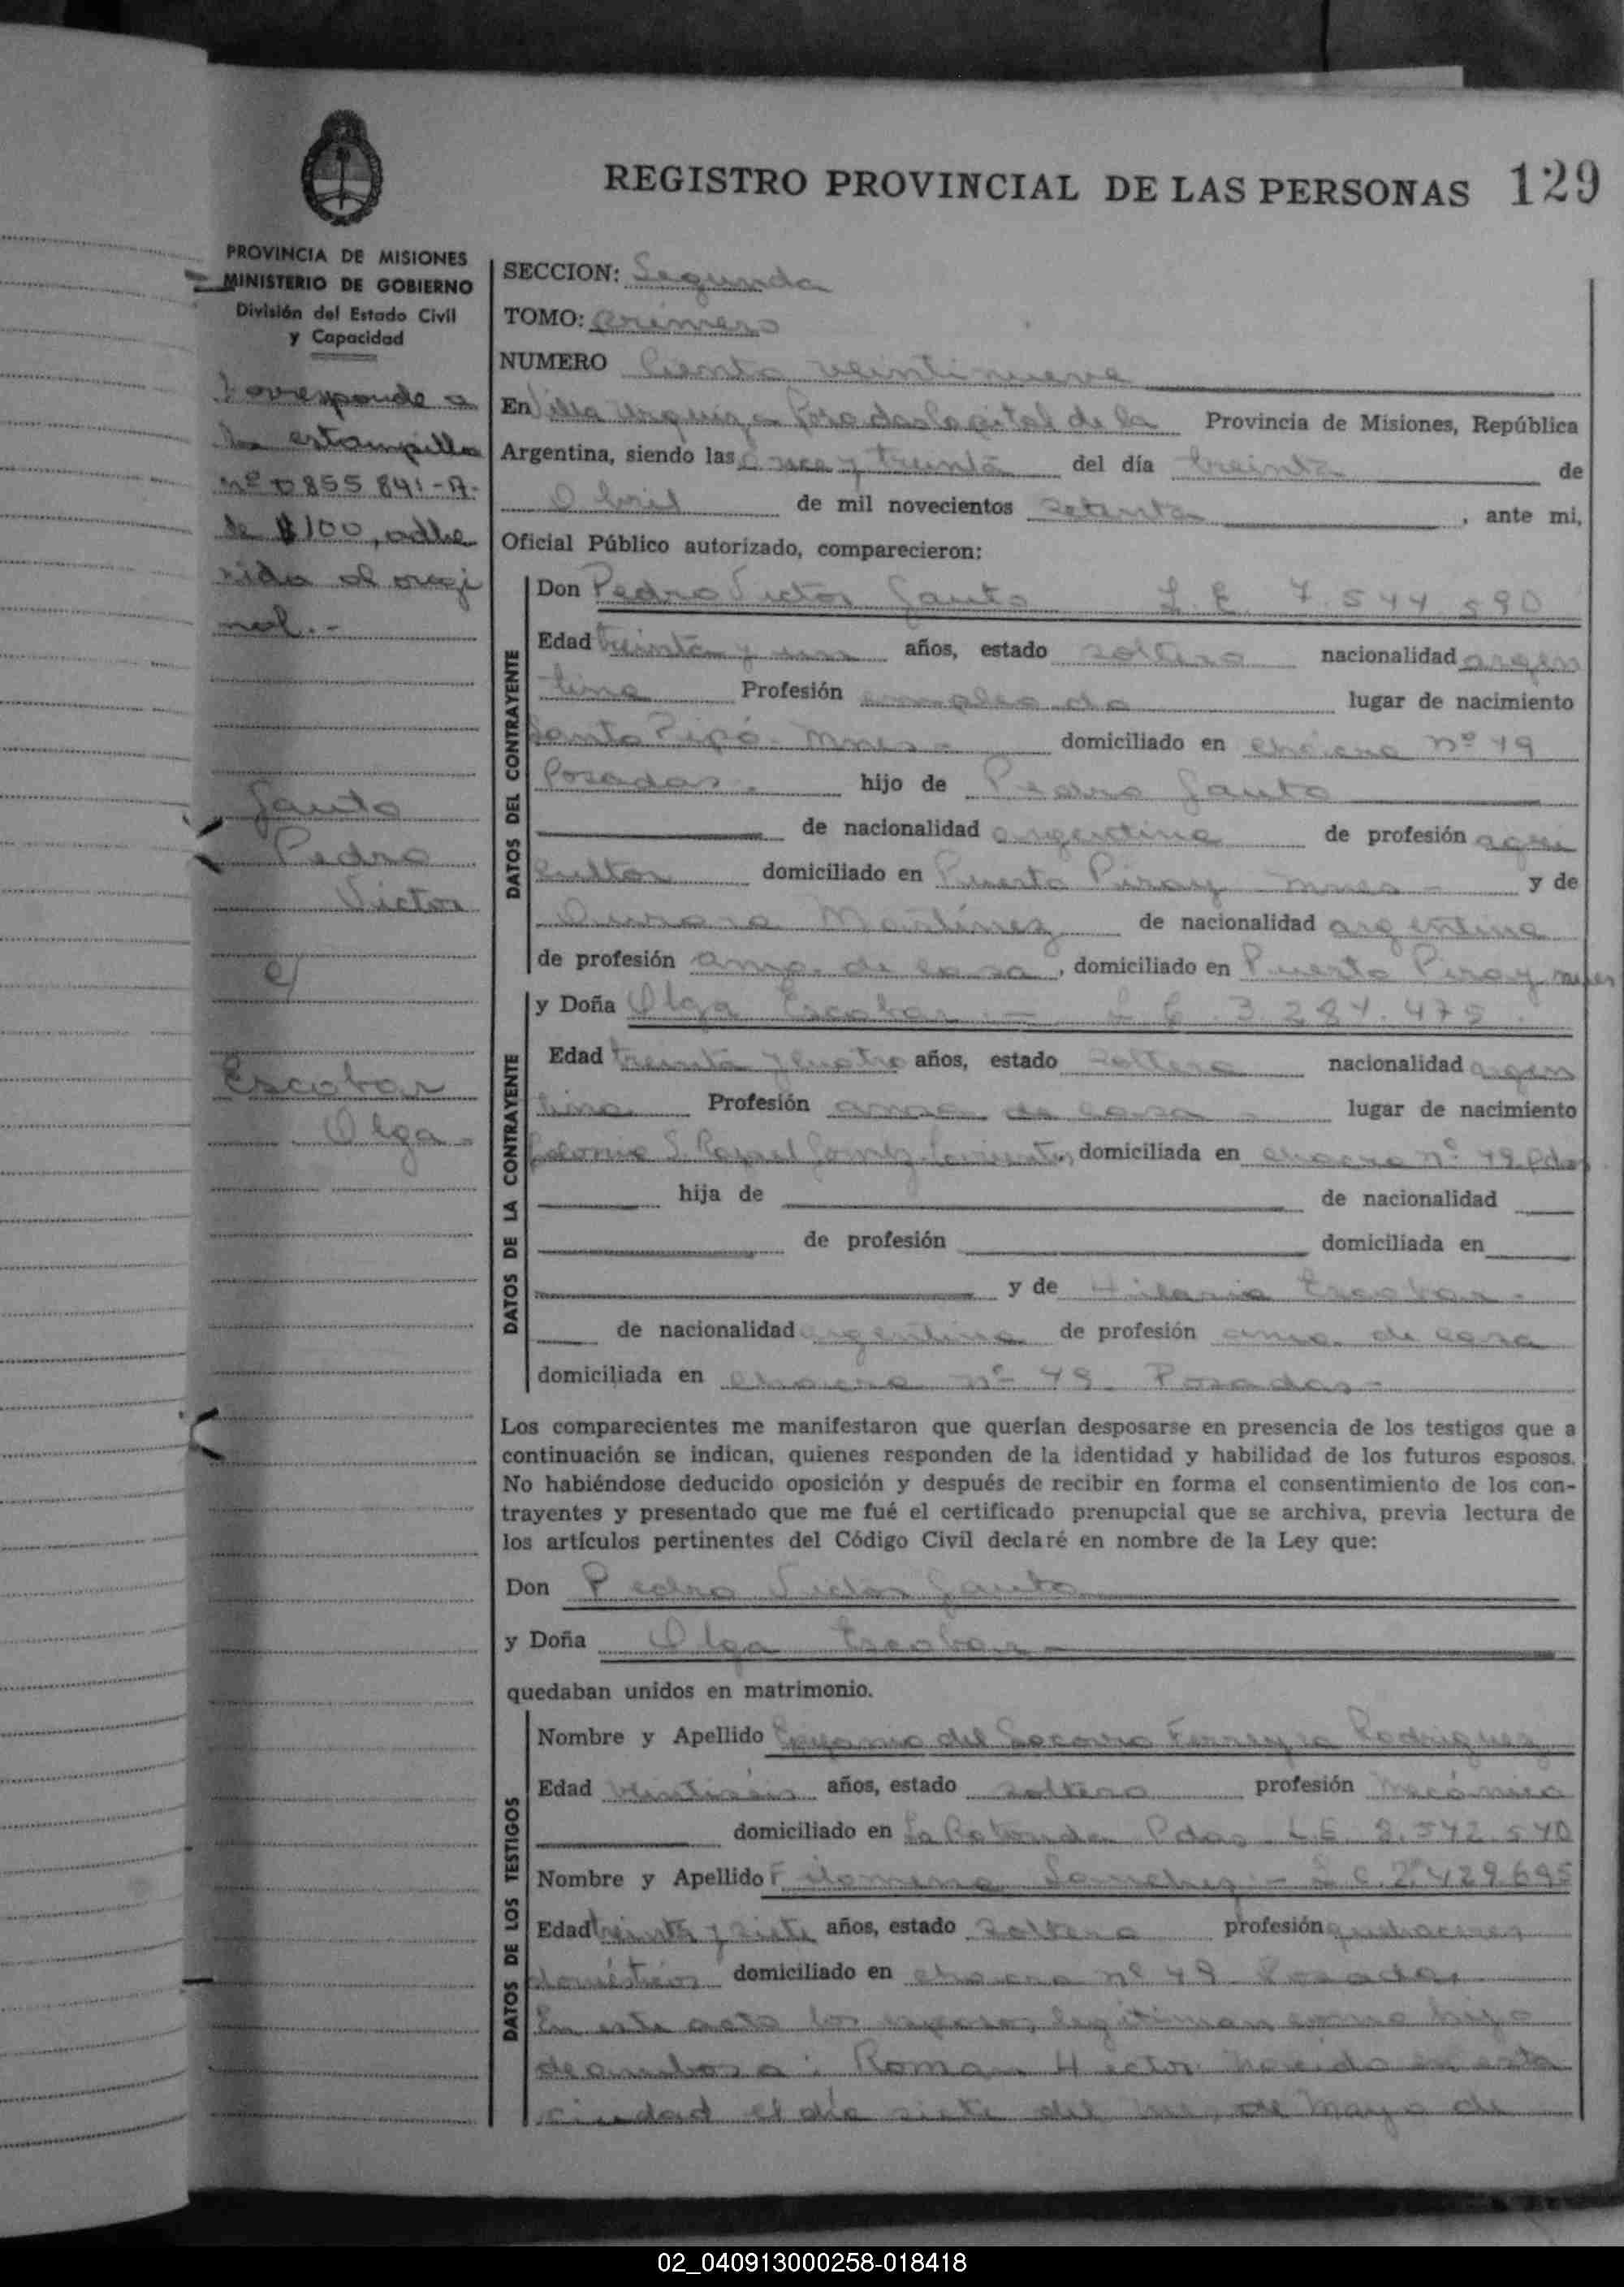 REGISTRO PROVINCIAL DE LAS PERSONAS 129
PROVINCIA DE MISIONES
MINISTERIO DE GOBIERNO
División del Estado Civil
y Capacidad
Corresponde a
la estampilla
nº 0855841-A-
de $100, adhe
rida al origi
nal.-
Gauto
Pedro
Victor
c/
Escobar
Olga-
SECCION: Segunda
TOMO: Primero
NUMERO Ciento veintinueve
En Villa Urquiza Posadas Capital de la Provincia de Misiones, República
Argentina, siendo las once y treinta del día treinta de
Abril de mil novecientos setenta, ante mi,
Oficial Público autorizado, comparecieron:
DATOS DEL CONTRAYENTE
Don Pedro Victor Gauto L.E. 7.544.590
Edad treinta y un años, estado soltero nacionalidad argen
tina Profesión empleado lugar de nacimiento
Santo Pipó- Mnes- domiciliado en chacra nº 49
Posadas. hijo de Pedro Gauto
de nacionalidad argentina de profesión agri
cultor domiciliado en Puerto Piray Mnes- y de
Aurora Martínez de nacionalidad argentina
de profesión ama de casa, domiciliado en Puerto Piray Mnes
DATOS DE LA CONTRAYENTE
y Doña Olga Escobar.- L C. 3.284.475.
Edad treinta y cuatro años, estado soltera nacionalidad argen
tina Profesión ama de casa- lugar de nacimiento
Colonia S. Rafael Corrientes, domiciliada en chacra nº 49 Pdas
hija de de nacionalidad
de profesión domiciliada en
y de Hilaria Escobar-
de nacionalidad argentina de profesión ama de casa
domiciliada en chacra nº 49 Posadas-
Los comparecientes me manifestaron que querían desposarse en presencia de los testigos que a
continuación se indican, quienes responden de la identidad y habilidad de los futuros esposos.
No habiéndose deducido oposición y después de recibir en forma el consentimiento de los con-
trayentes y presentado que me fué el certificado prenupcial que se archiva, previa lectura de
los artículos pertinentes del Código Civil declaré en nombre de la Ley que:
Don Pedro Victor Gauto
y Doña Olga Escobar-
quedaban unidos en matrimonio.
DATOS DE LOS TESTIGOS
Nombre y Apellido del Socorro Ferreyra Rodriguez
Edad veintiseis años, estado soltero profesión mecánico
domiciliado en La Rotonda Pdas L.E 8.542.540
Nombre y Apellido Filomena Sanchez- L C. 2.429.695
Edad treinta y siete años, estado soltera profesión quehaceres
domésticos domiciliado en chacra nº 49 Posadas
En este acto los esposos legitiman como hijo
de ambos a: Roman Hector nacido en esta
ciudad el día siete del mes de Mayo de
02_040913000258-018418